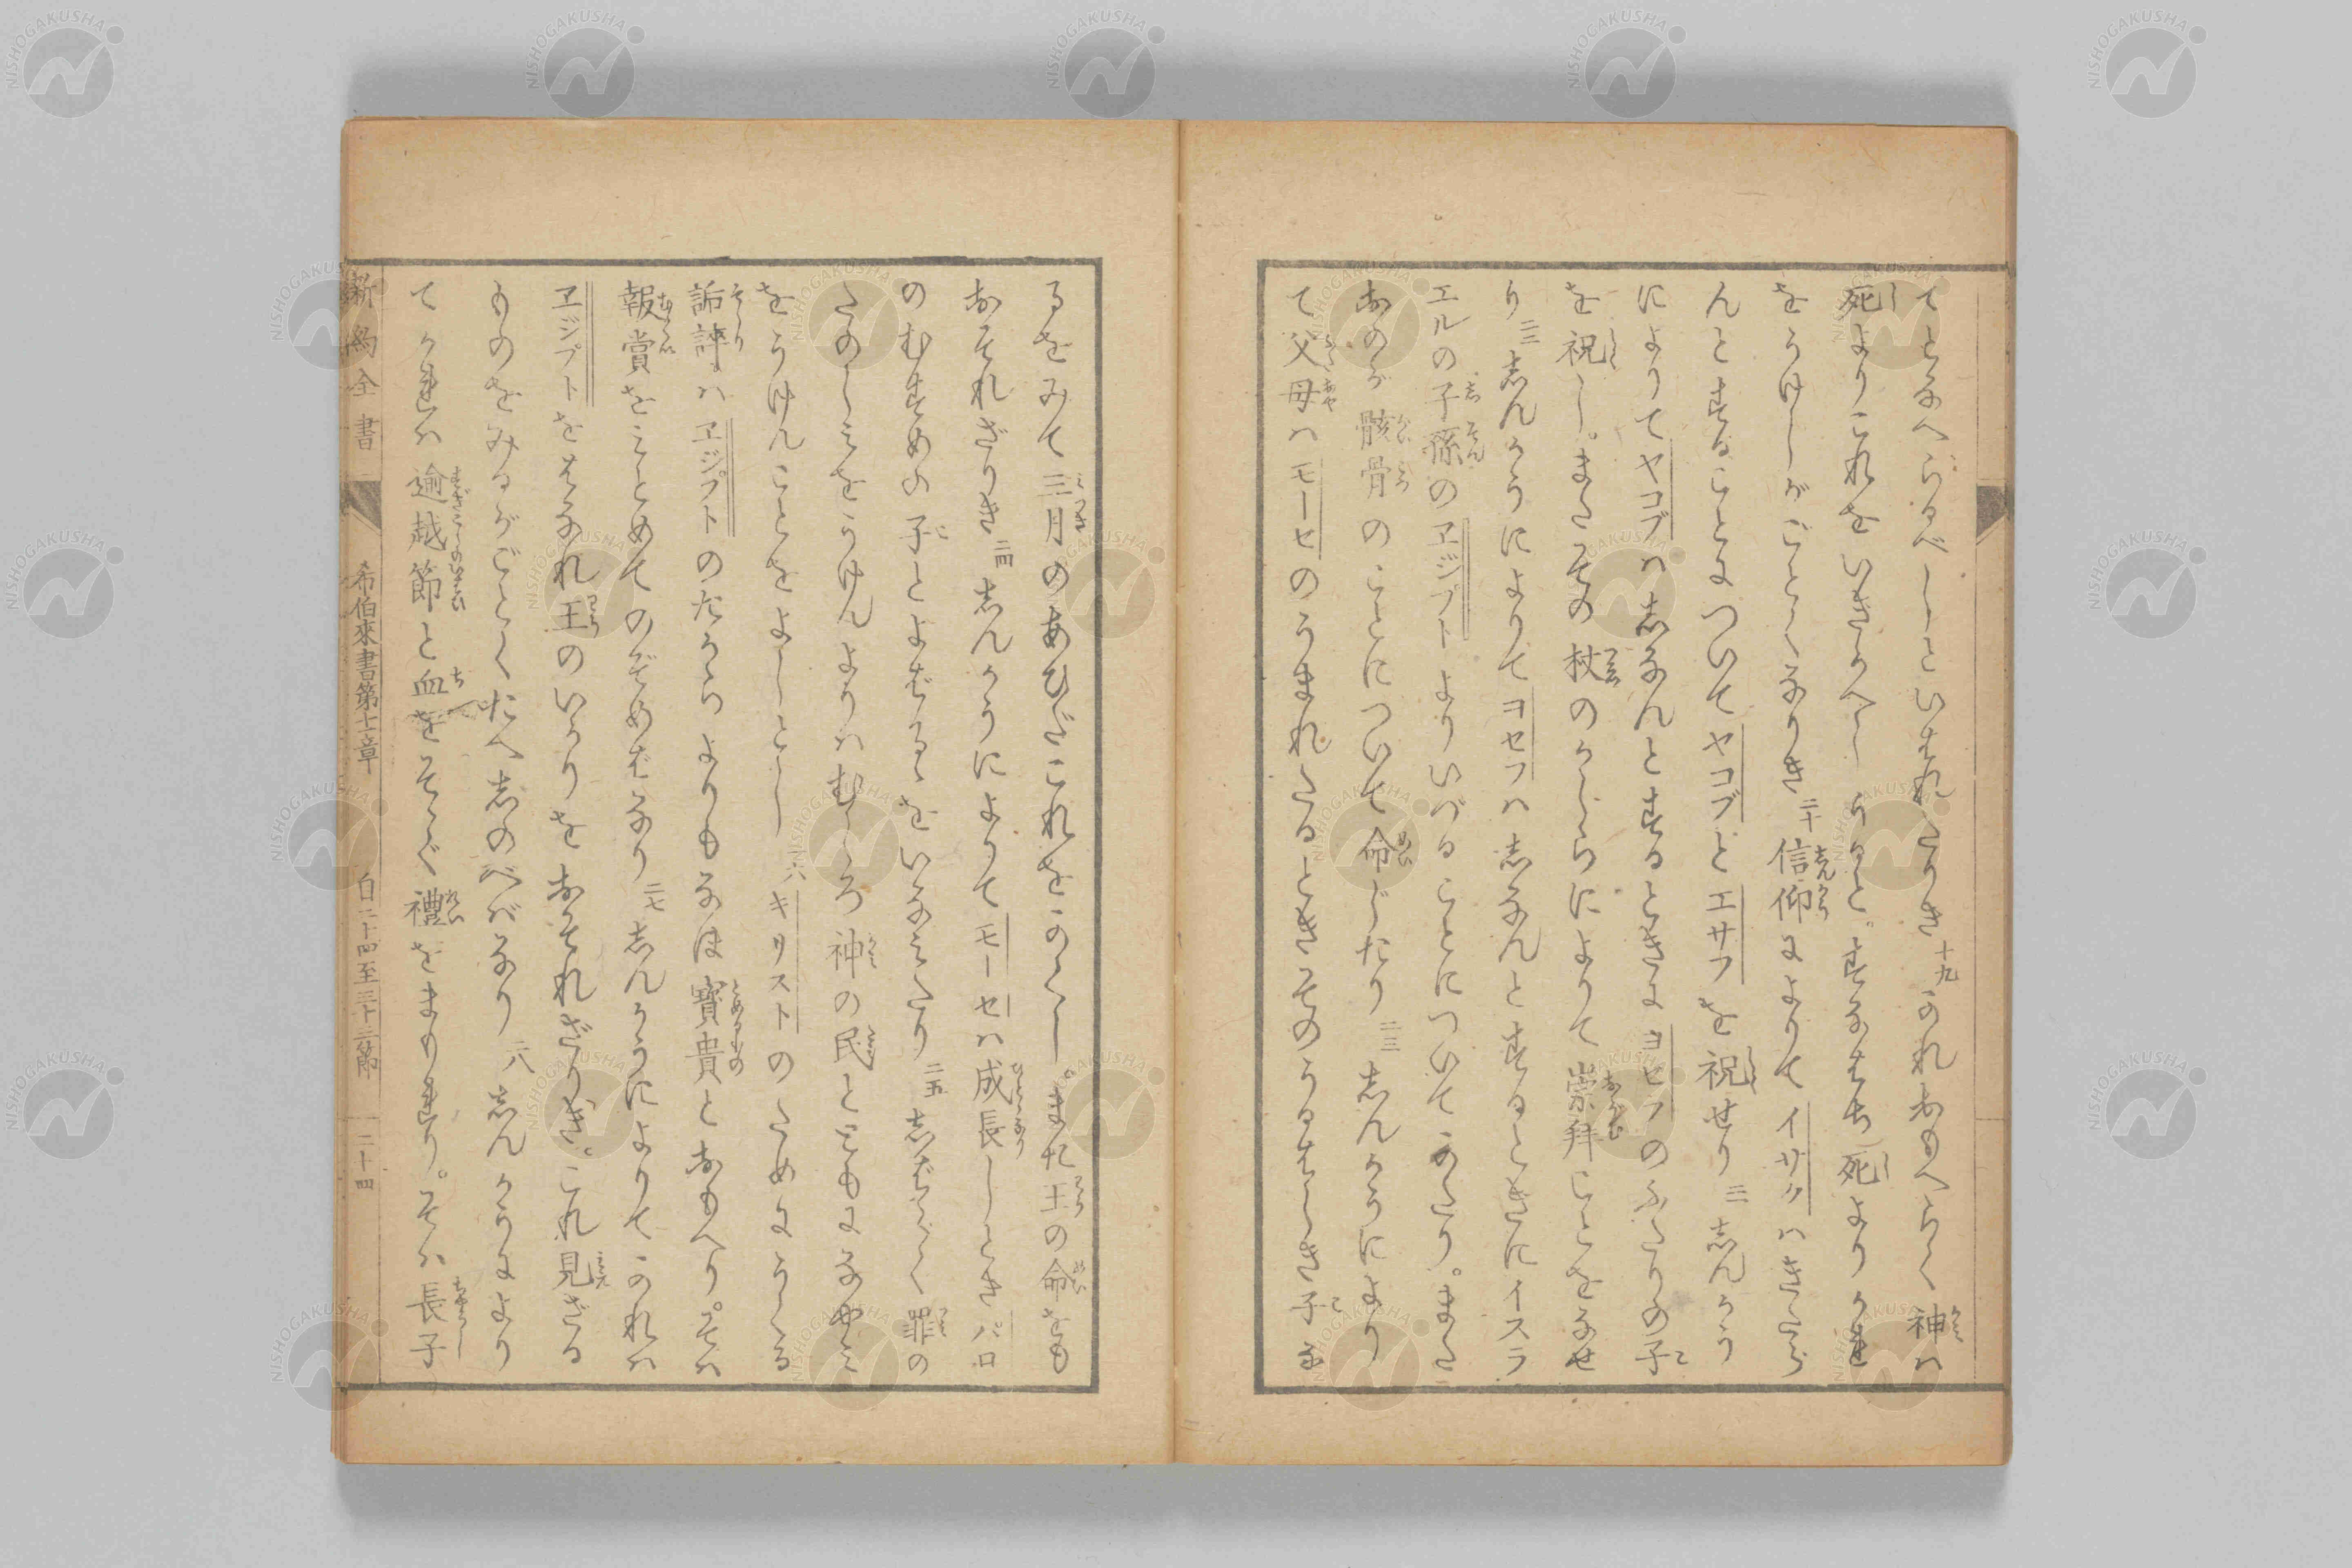 てとなへらるべしといはれたりき 十九 かれおもへらく神ハ
死よりこれをいきかへしうると。すなはち死よりかれ
をうけしがごとくなりき 二十 信仰によりてイサクハきたら
んとすることについてヤコブとエサフを祝せり 二一 志んかう
によりてヤコブハ志なんとするときにヨセフのふたりの子
を祝し。またその杖のかしらによりて崇拜ことをなせ
り 二二 志んかうによりてヨセフハ志なんとするときにイスラ
エルの子孫のヱジプトよりいづることについてかたり。また
おのが骸骨のことについて命じたり 二三 志んかうにより
て父母ハモーセのうまれたるときそのうるはしき子な
るをみて三月のあひだこれをかくし。また王の命をも
おそれざりき 二四 志んかうによりてモーセハ成長しときパロ
のむすめの子とよばるゝをいなみたり 二五 志ばらく罪の
たのしみをうけんよりハむしろ神の民とともになやみ
をうけんことをよしとし 二六 キリストのためにうくる
詬誶ハヱジプトのたからよりもなほ寳貴とおもへり。そハ
報賞をみとめてのぞめばなり 二七 志んかうによりてかれハ
ヱジプトをはなれ王のいかりをおそれざりき。これ見ざる
ものをみるがごとくたへ志のべばなり 二八 志んかうにより
てかれハ逾越節と血をそゝぐ禮をまもれり。そハ長子
新約全書 希伯來書第十一章 自二十四至三十三節 二十四